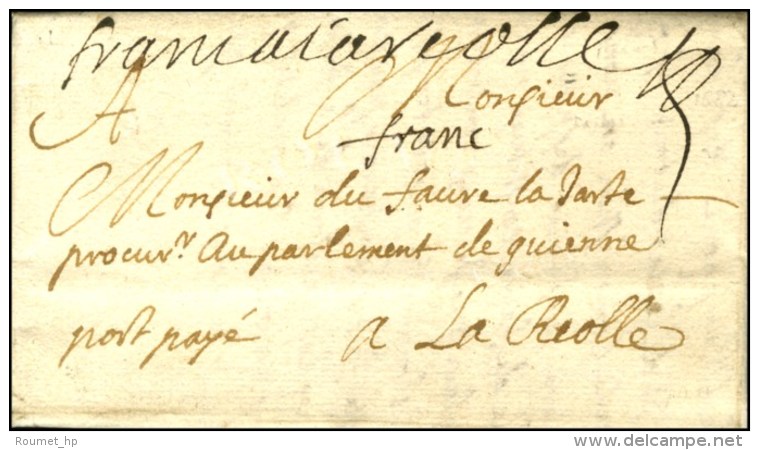 franc a la reolle
A Monsieur
franc
Monsieur du faure la Tarte
procur.r Au parlement de guienne
port payé a La Reolle
Roumet_hp
www.delcampe.net